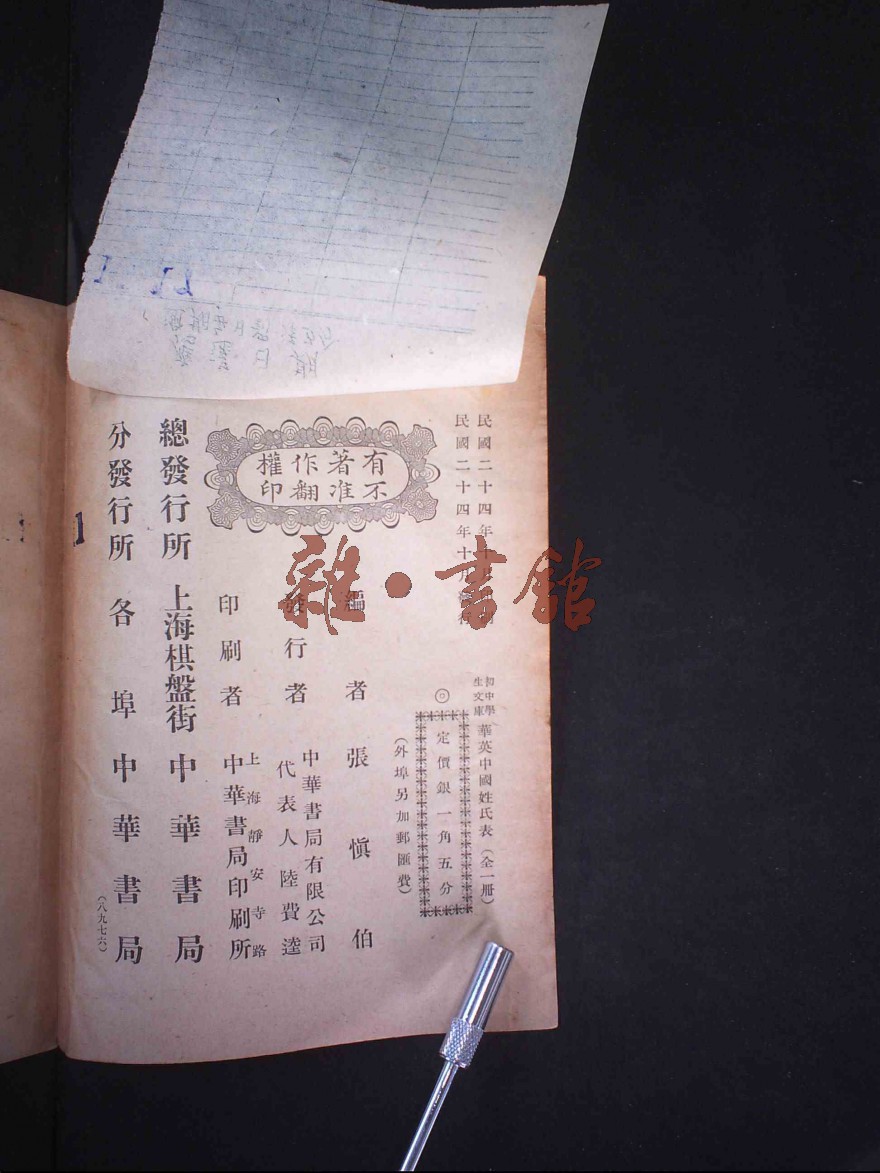 民國二十四年十月印刷
民國二十四年十月發行
初中學生文庫 華英中國姓氏表（全一册）
◎定價銀一角五分
（外埠另加郵匯費）
有著作權
不准翻印
編者 張愼伯
發行者 中華書局有限公司
代表人陸費逵
印刷者 上海靜安寺路
中華書局印刷所
總發行所 上海棋盤街 中華書局
分發行所 各埠中華書局
（八九七六）
雜·書館